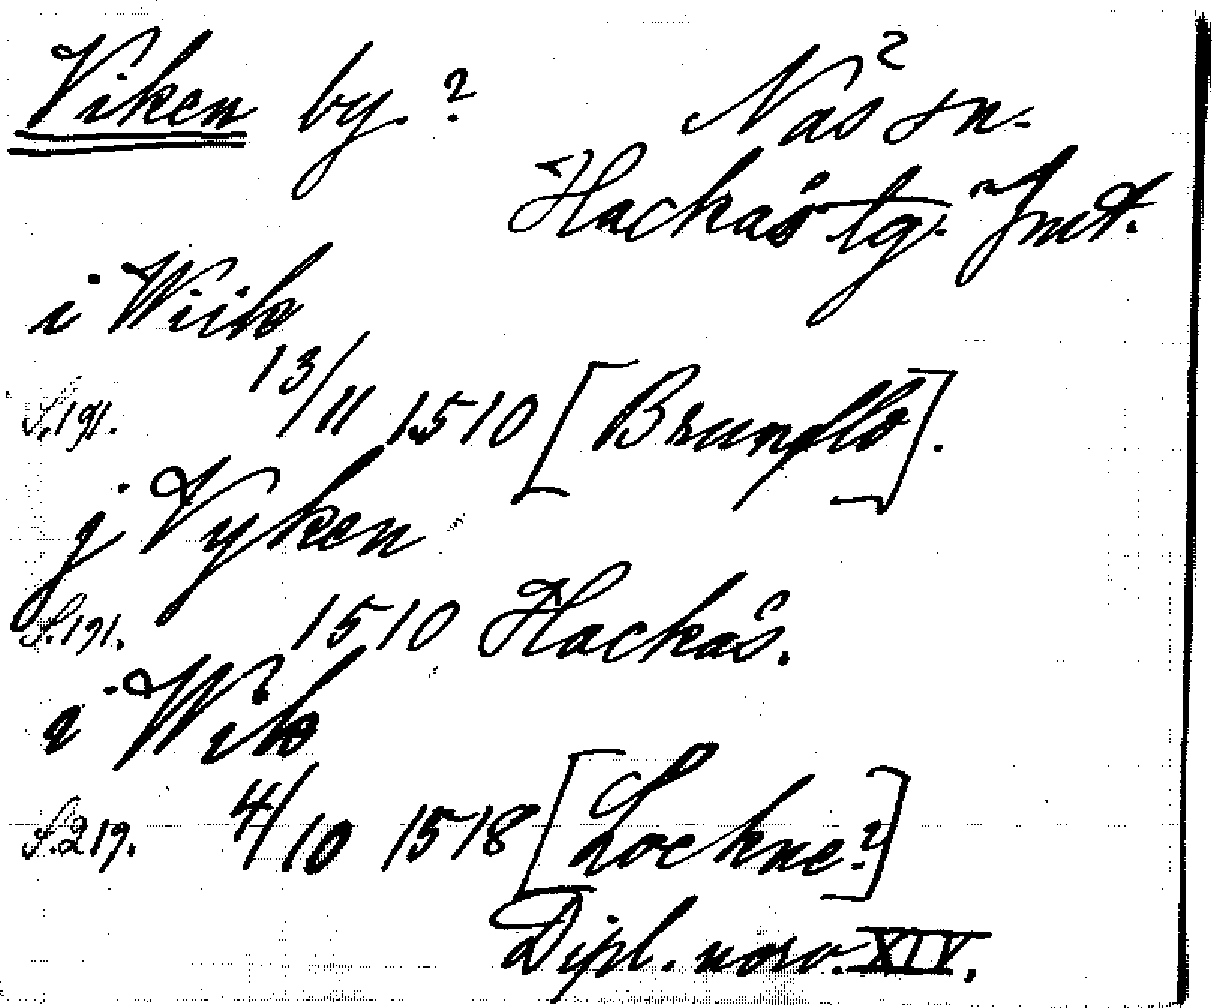 Viken by.? Näs sn.
Hackås tg. Jmt.
i Wiik
S.191. 13/11 1510 [Brunflo].
j Vyken
S.191. 1510 Hackås.
i Wik
S.219. 4/10 1518 [Lockne?]
Dipl. norv. XIV.